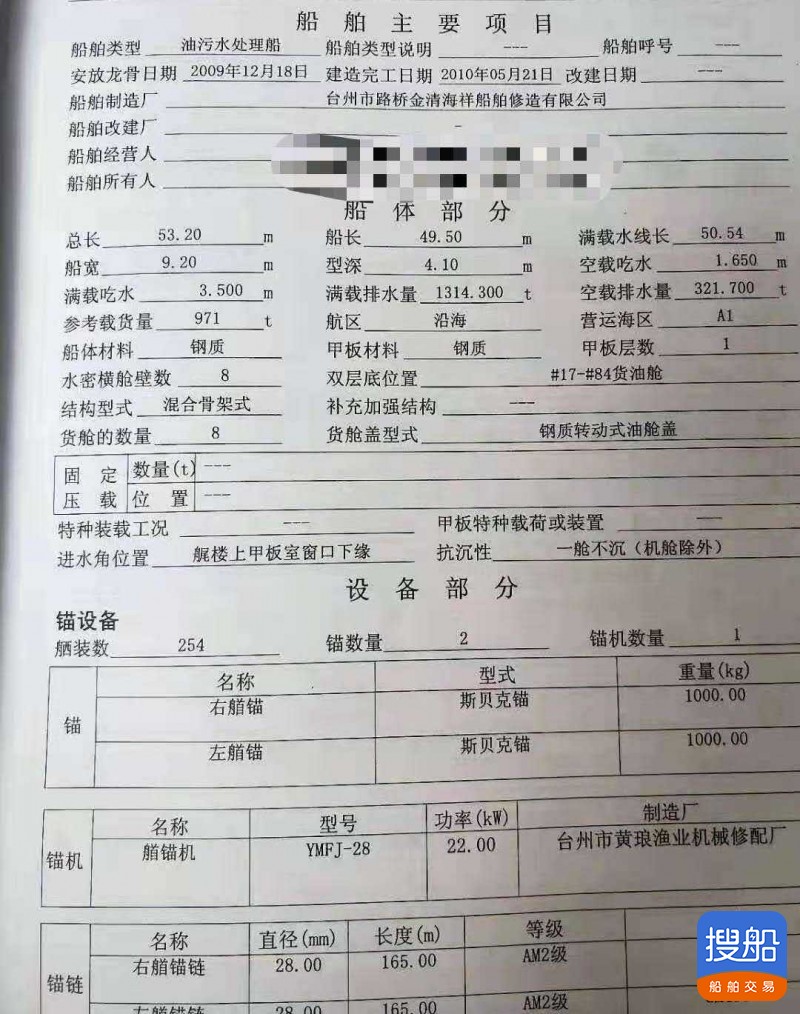 船 舶 主 要 项 目
船舶类型 油污水处理船 船舶类型说明 --- 船舶呼号 ---
安放龙骨日期 2009年12月18日 建造完工日期 2010年05月21日 改建日期 ---
船舶制造厂 台州市路桥金清海祥船舶修造有限公司
船舶改建厂 -
船舶经营人
船舶所有人
船 体 部 分
总长 53.20 m 船长 49.50 m 满载水线长 50.54 m
船宽 9.20 m 型深 4.10 m 空载吃水 1.650 m
满载吃水 3.500 m 满载排水量 1314.300 t 空载排水量 321.700 t
参考载货量 971 t 航区 沿海 营运海区 A1
船体材料 钢质 甲板材料 钢质 甲板层数 1
水密横舱壁数 8 双层底位置 #17-#84货油舱
结构型式 混合骨架式 补充加强结构 ---
货舱的数量 8 货舱盖型式 钢质转动式油舱盖
固 定 数量(t) ---
压 载 位 置 ---
特种装载工况 --- 甲板特种载荷或装置 ---
进水角位置 艉楼上甲板室窗口下缘 抗沉性 一舱不沉（机舱除外）
设 备 部 分
锚设备
舾装数 254 锚数量 2 锚机数量 1
名称 型式 重量(kg)
锚
右艏锚 斯贝克锚 1000.00
左艏锚 斯贝克锚 1000.00
名称 型号 功率(kW) 制造厂
锚机 艏锚机 YMFJ-28 22.00 台州市黄琅渔业机械修配厂
名称 直径(mm) 长度(m) 等级
锚链
右艏锚链 28.00 165.00 AM2级
左艏锚链 28.00 165.00 AM2级
搜船
船舶交易